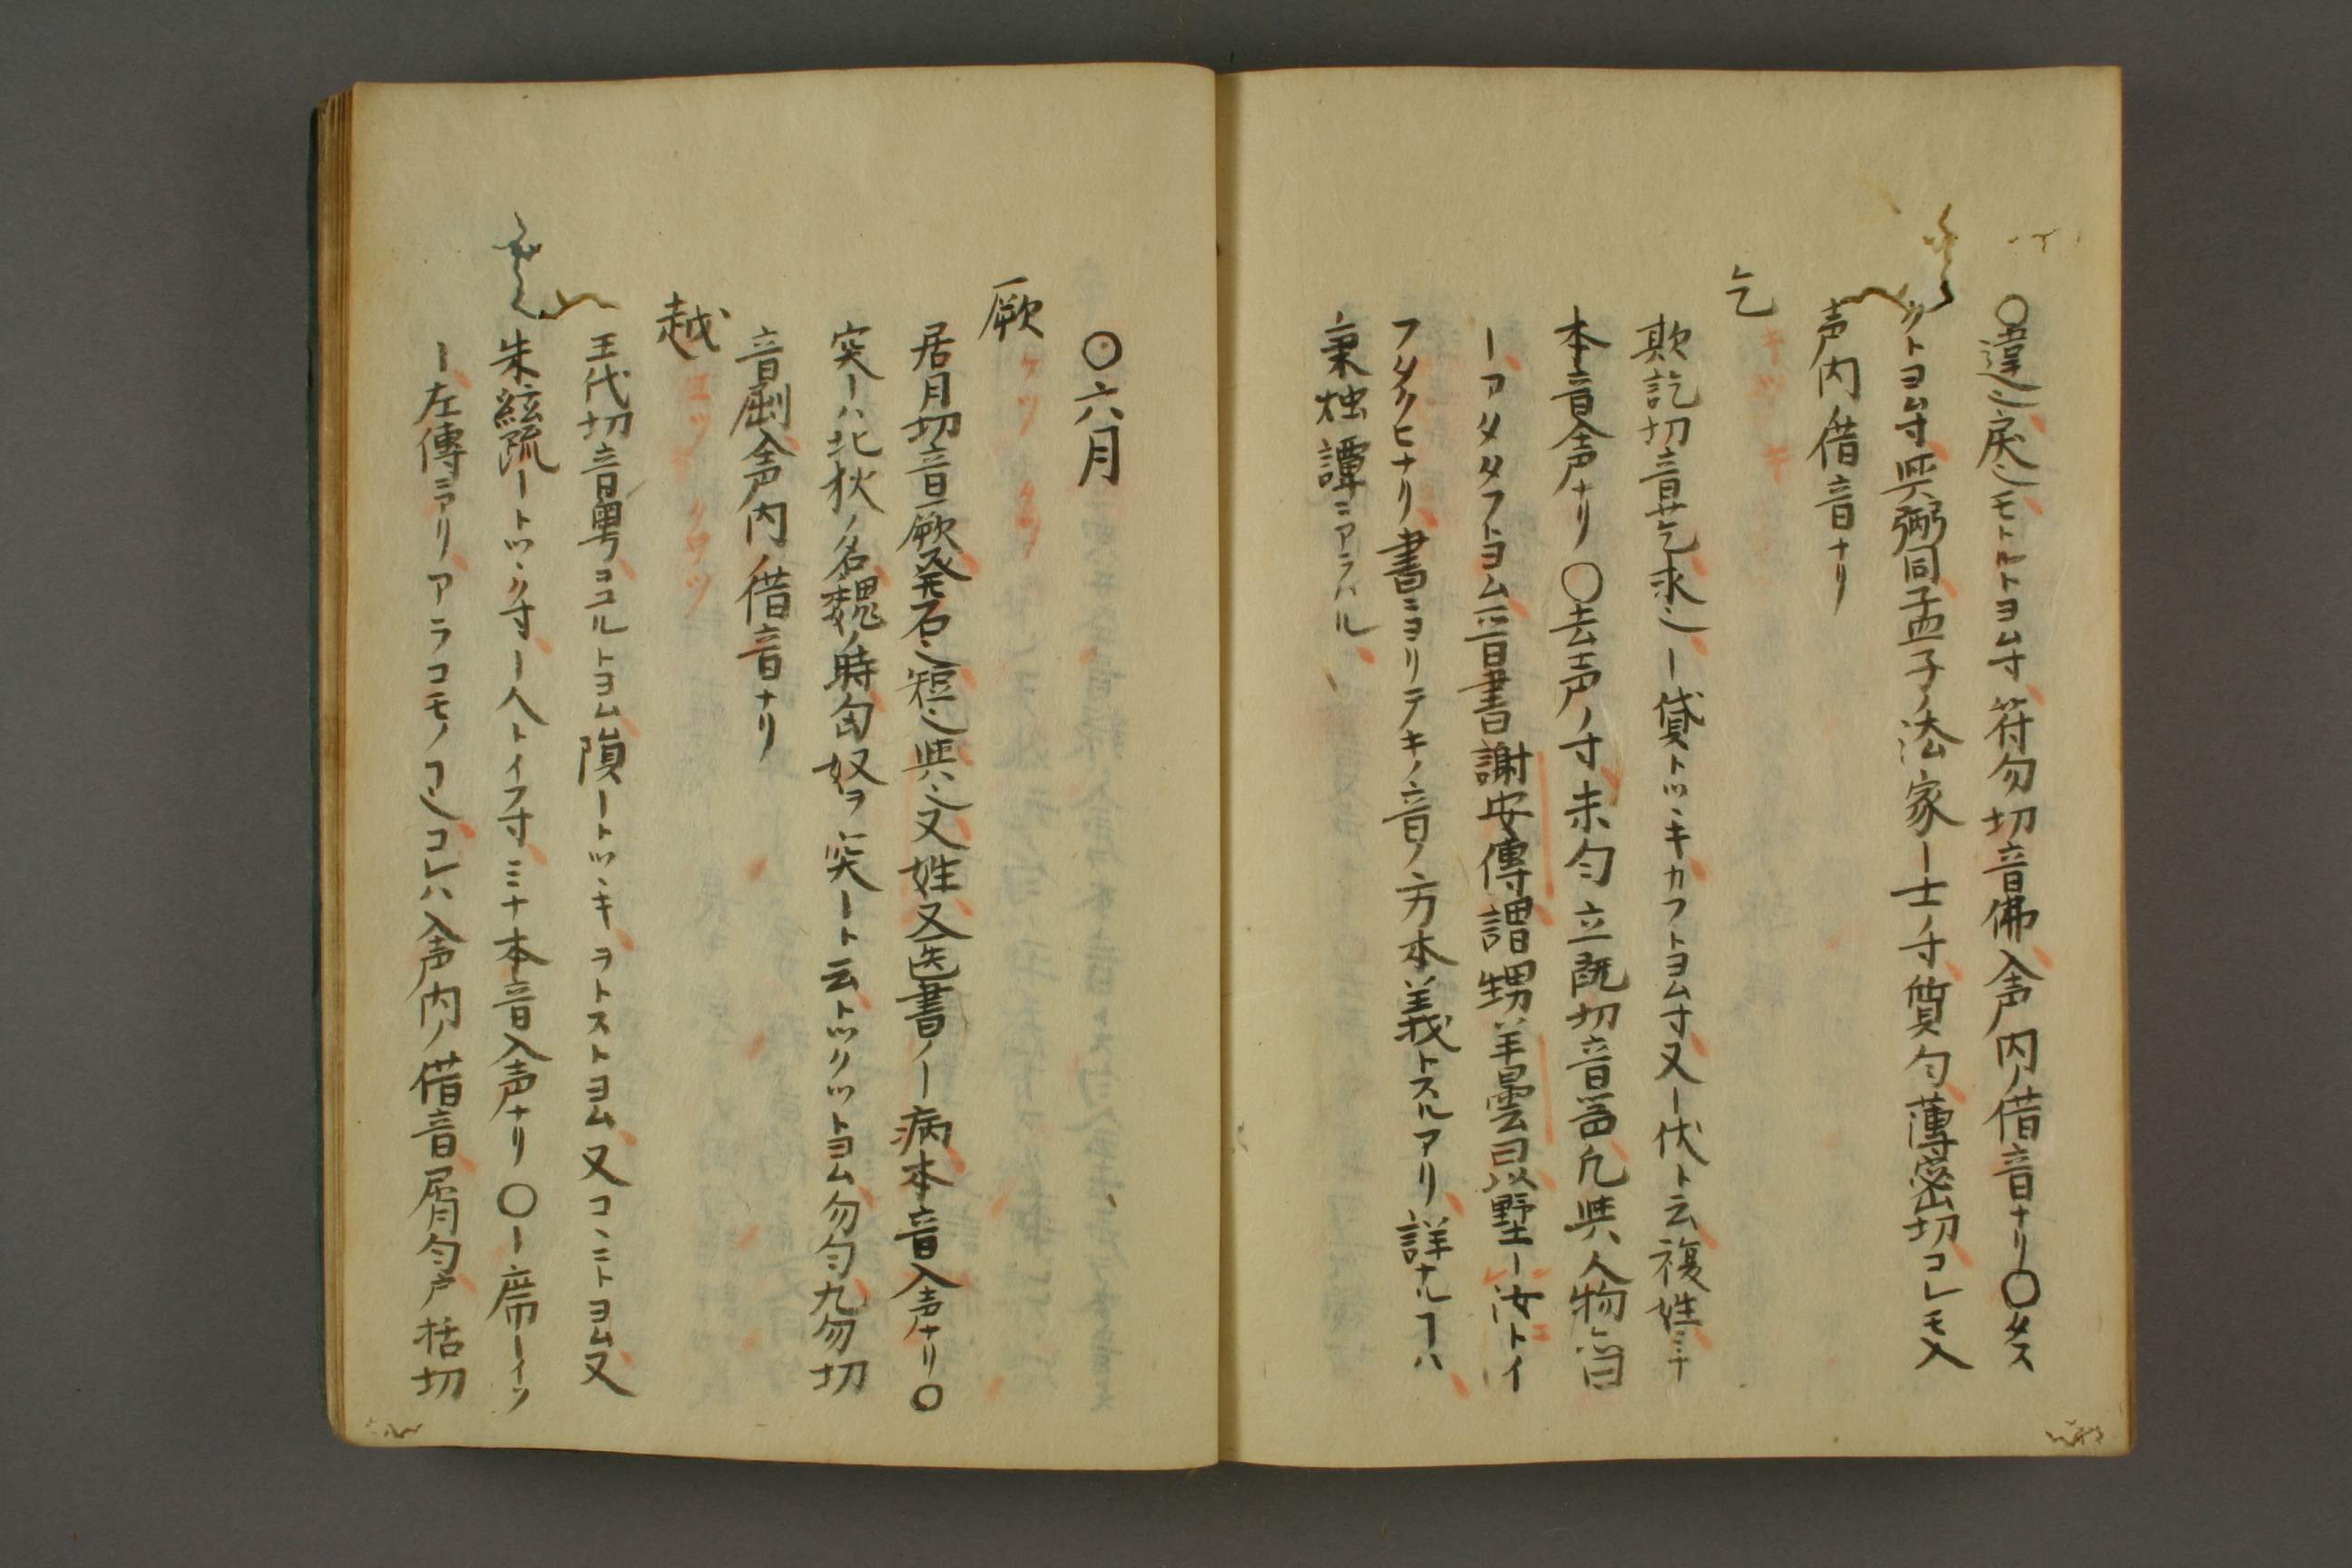 〇違也戻也モトルトヨム寸符勿切音佛入声内ノ借音ナリ〇タス
クトヨム寸與弼同孟子ノ法家ー士ノ寸質匀薄宻切コレモ入
声内ノ借音ナリ
乞
キツ キ
欺訖切音芞求也ー貸トツヽキカフトヨム寸又ー伏ト云複姓ミナ
本音入声ナリ〇去声ノ寸未匀立既切音凡與人物亦曰
ーアタタフトヨム晋書謝安傳謂甥羊曇曰以墅ー汝トイ
フタクヒナリ書ニヨリテキノ音ノ方本義トスルアリ詳ナルヿハ
秉燭譚ニアラハル
〇六月
厥
ケツ クツ
居月切音蕨発石也短也其也又姓又医書ノー病本音入声ナリ〇
突ーハ北狄ノ名魏ノ時匈奴ヲ突ート云トツクツトヨム勿匀九勿切
音劂入声内ノ借音ナリ
越
エツ クワツ
王伐切音粤コユルトヨム隕ートツヽキヲトストヨム又コヽニトヨム又
朱絃疏ートツヽク寸ー人トイフ寸ミナ本音入声ナリ〇ー席ーイツ
ー左傳ニアリアラコモノヿ也コレハ入声内ノ借音屑匀戸括切